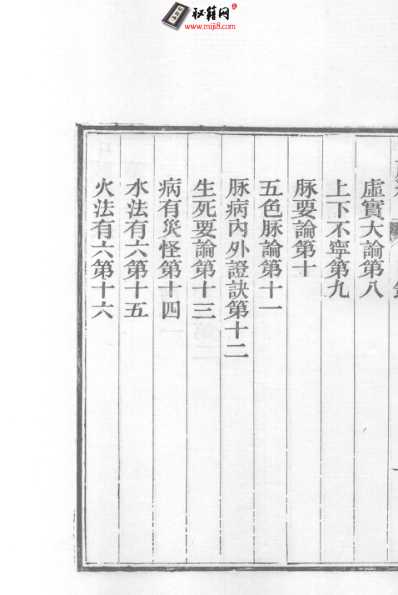 秘籍网
www.miji8.com
虛實大論第八
上下不寧第九
脉要論第十
五色脉論第十一
脉病內外證訣第十二
生死要論第十三
病有災怪第十四
水法有六第十五
火法有六第十六